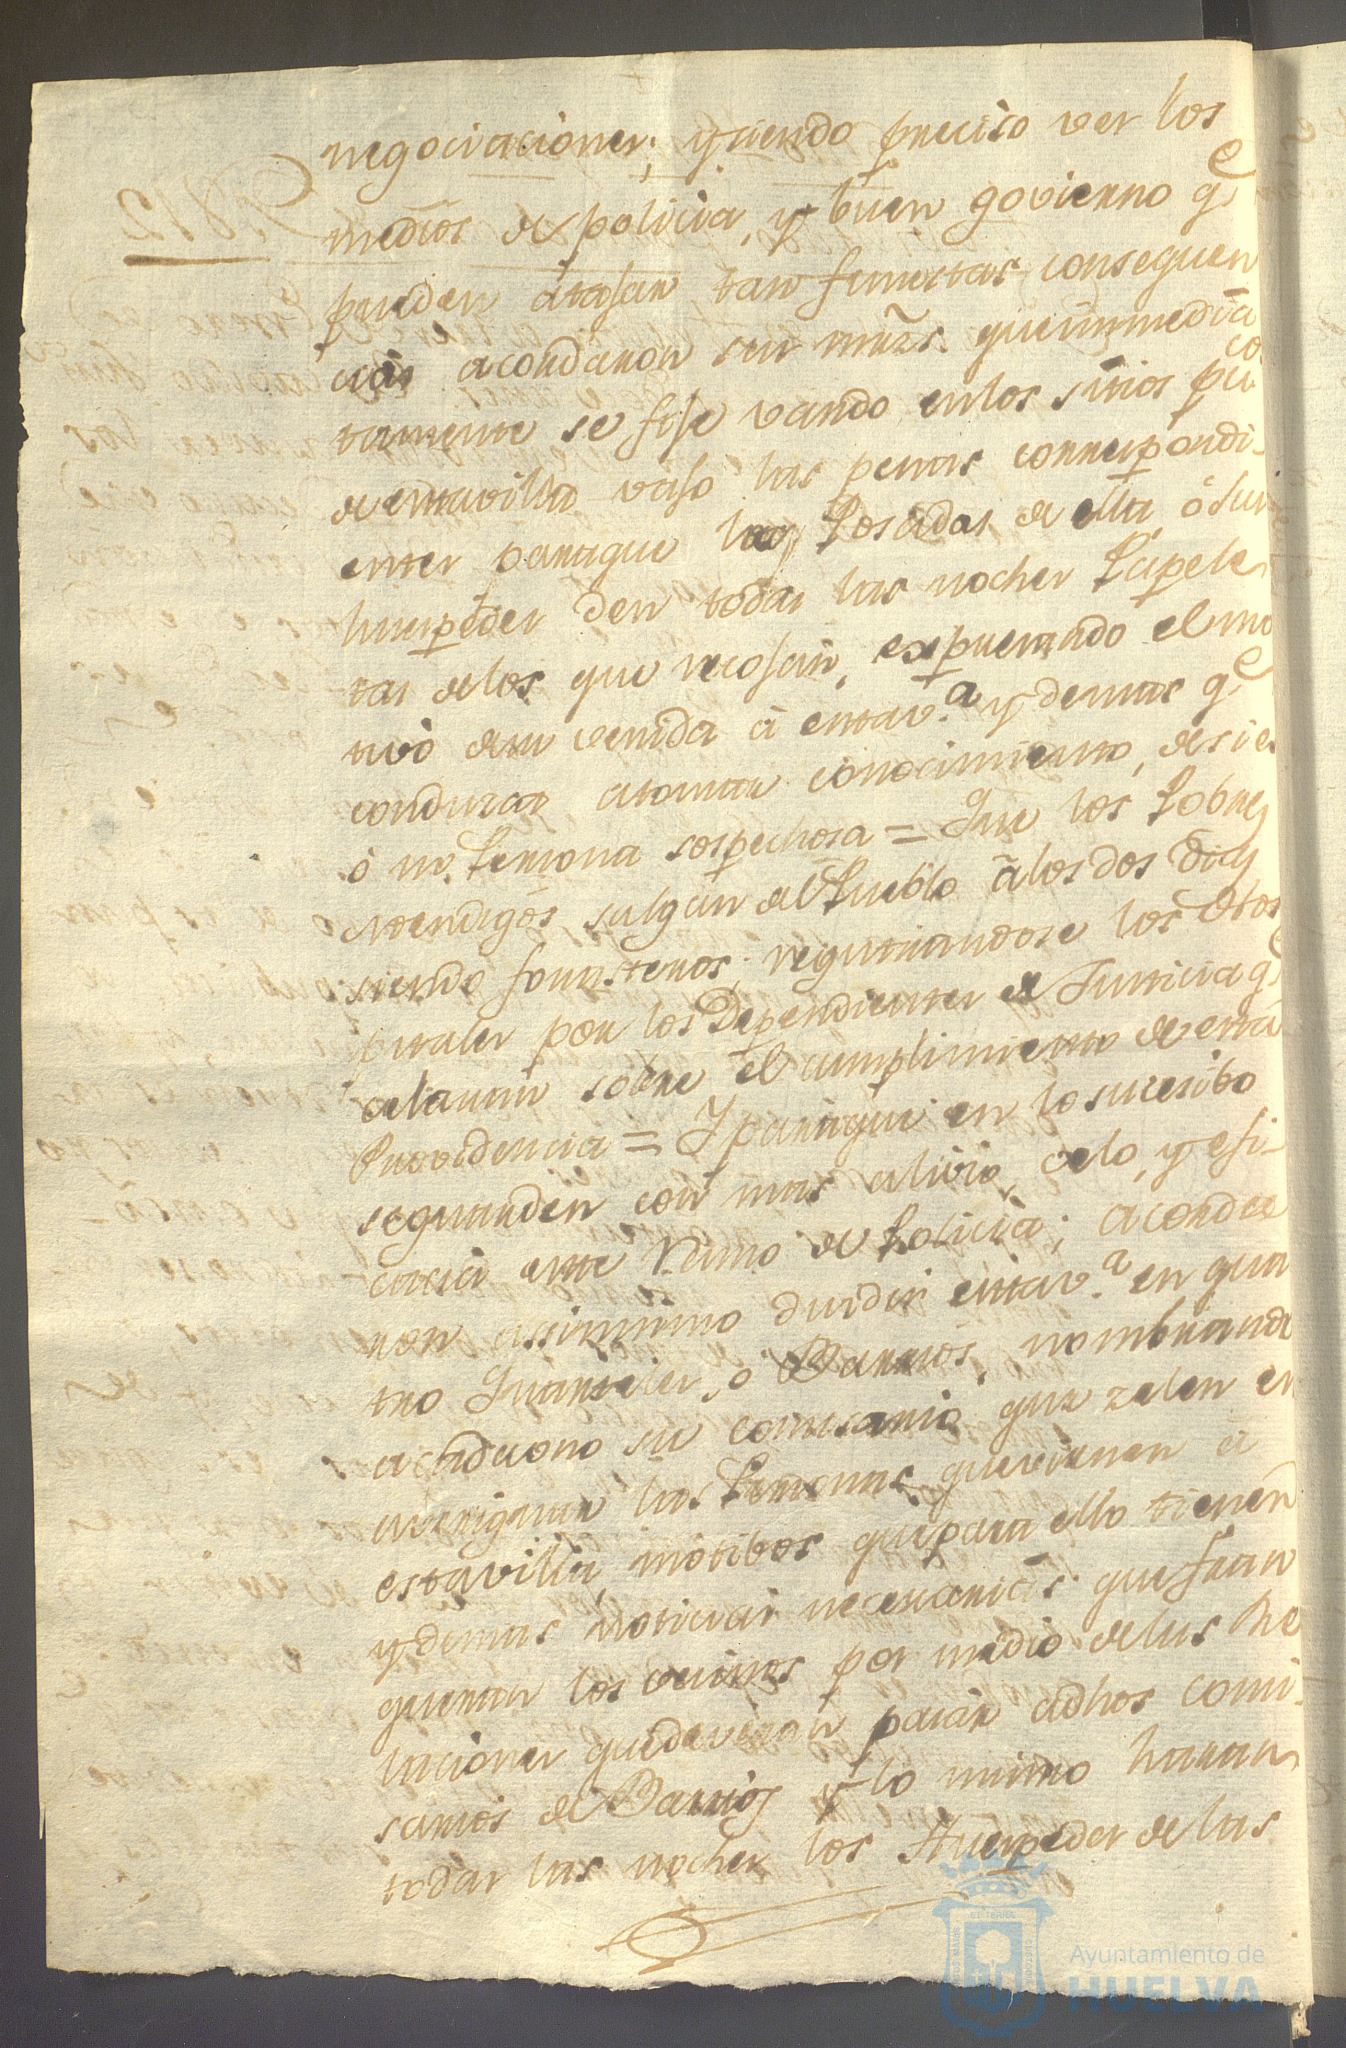 negociaciones; y siendo preciso ver los
medios de policia, y buen govierno qe
pueden atajar tan funestas consequen
cias acordaron sus mrzs. que inmedia
tamente se fije vando en los sitios pcos
de esta villa vajo las penas correspondi-
entes para que las Posadas de ella, ó sus
huespedes den todas las noches Papele
tas de los que recojan, expresando el mo
tivo de su venida á esta v.a y demas qe
conduzcan a tomar conocimiento, de si es
ó no Persona sospechosa = Que los Pobres
mendigos salgan del Pueblo á los dos dias
siendo forasteros; registrandose los Hos
pitales por los Dependientes de Justicia qe
celaran sobre el cumplimiento de esta
Providencia = Y para que en lo sucesibo
se guarden con mas alivio, celo, y efi-
cacia este Ramo de Policia; acorda
ron assimismo dividir esta v.a en qua
tro Quarteles, ó Barrios, nombrando
a cada uno su comisario que zelen en
averiguar las Personas que vienen a
esta villa, motibos que para ello tienen
y demas noticias necesarias que fran
quearan los vecinos por medio de las Re
laciones que deveran pasar a dhos comi-
sarios de Barrios y lo mismo haran
todas las noches los Huespedes de las
Ayuntamiento de
HUELVA